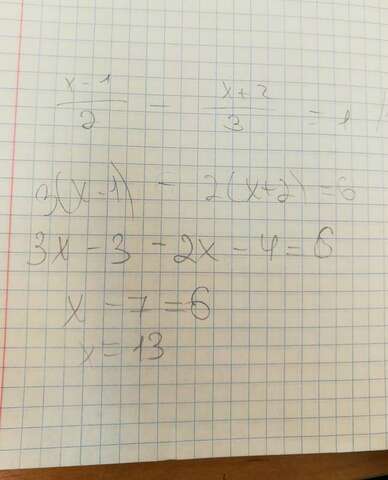 x-1/2 - x+2/3 = 1
3(x-1) - 2(x+2) = 6
3x - 3 - 2x - 4 = 6
x - 7 = 6
x = 13